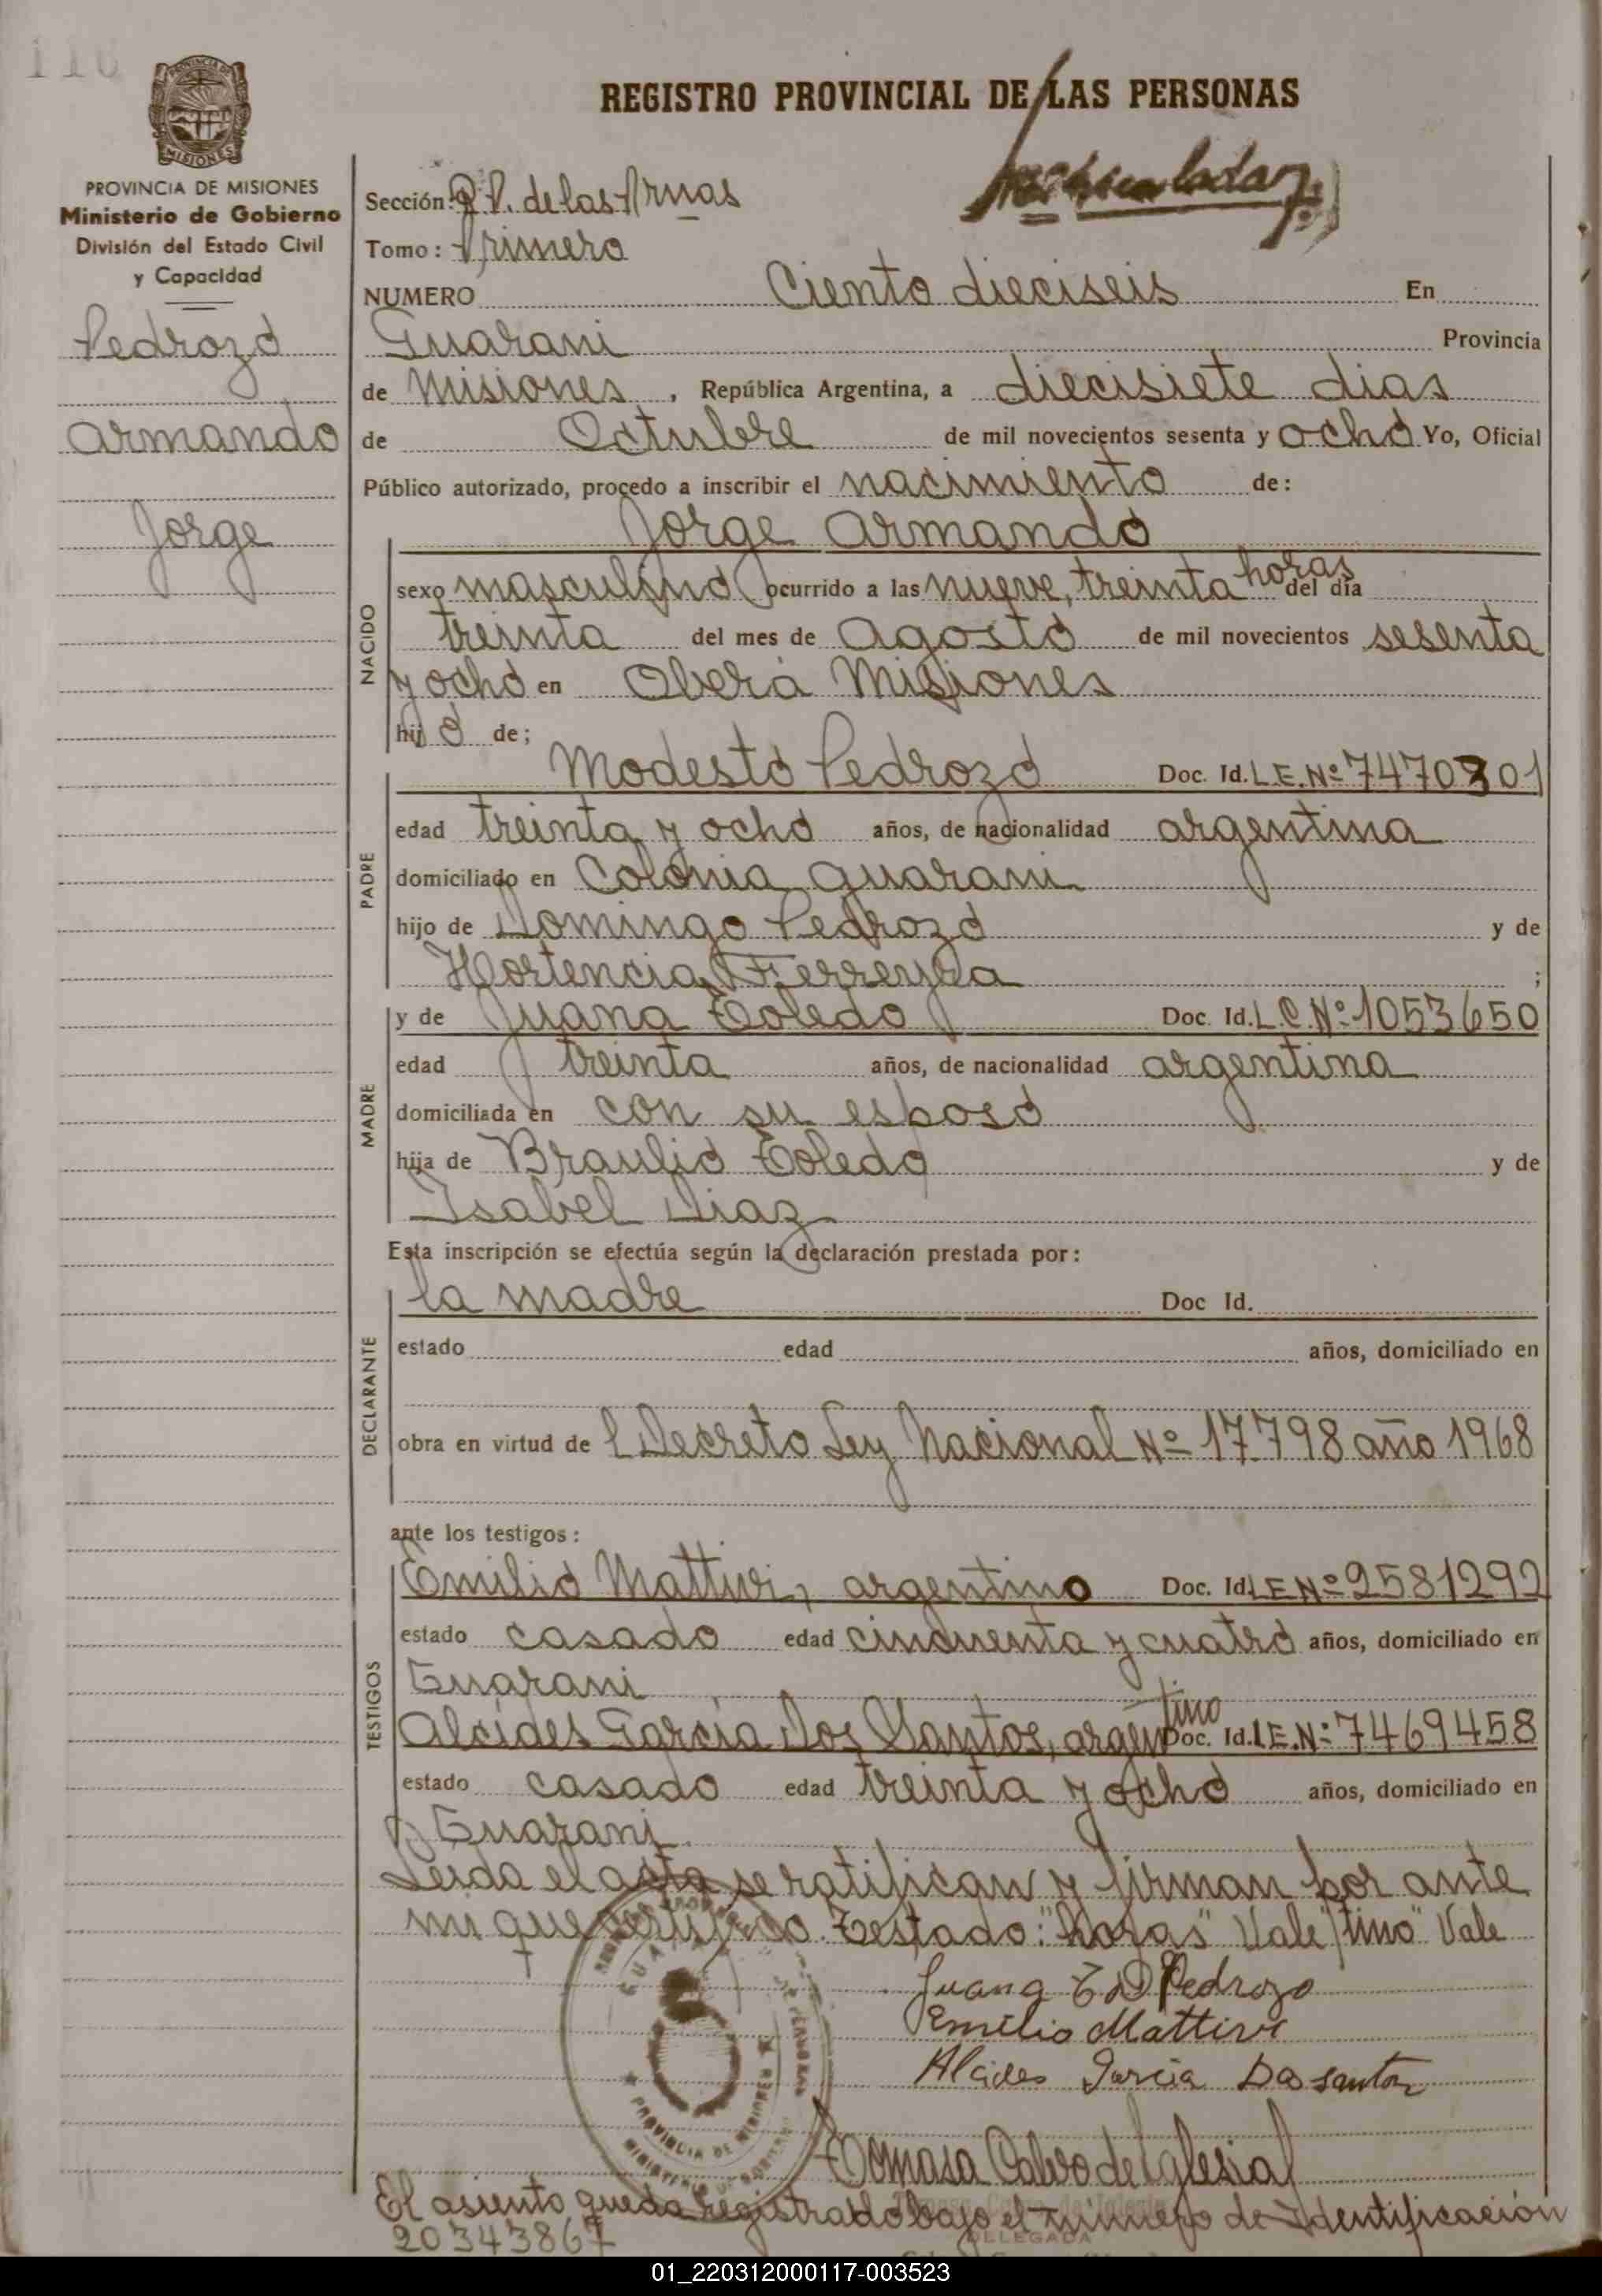 116
REGISTRO PROVINCIAL DE LAS PERSONAS
PROVINCIA DE MISIONES
Ministerio de Gobierno
División del Estado Civil
y Capacidad
Pedrozo
Armando
Jorge
Sección: de las Armas
Tomo: Primero
NUMERO Ciento dieciseis En
Guarani Provincia
de Misiones, República Argentina, a diecisiete dias
de Octubre de mil novecientos sesenta y ocho Yo, Oficial
Público autorizado, procedo a inscribir el nacimiento de:
NACIDO
Jorge Armando
sexo masculino ocurrido a las nueve, treinta horas del día
treinta del mes de Agosto de mil novecientos sesenta
y ocho en Oberá Misiones
hijo de;
PADRE
Modesto Pedrozo Doc. Id. L.E. Nº 7470301
edad treinta y ocho años, de nacionalidad argentina
domiciliado en Colonia guarani
hijo de Domingo Pedrozo y de
Hortencia Ferreyra ;
MADRE
y de Juana Toledo Doc. Id. L.C. Nº 1053650
edad treinta años, de nacionalidad argentina
domiciliada en con su esposo
hija de Braulio Toledo y de
Isabel Diaz
Esta inscripción se efectúa según la declaración prestada por:
DECLARANTE
la madre Doc Id.
estado edad años, domiciliado en
obra en virtud de l Decreto Ley Nacional Nº 17.798 año 1968
ante los testigos:
TESTIGOS
Emilio Mattivi, argentino Doc. Id. L.E. Nº 2581292
estado casado edad cincuenta y cuatro años, domiciliado en
Guarani
Alcides Garcia Dos Santos, argentino Doc. Id. L.E. Nº 7469458
estado casado edad treinta y ocho años, domiciliado en
Guarani
Leida el acta se ratifican y firman por ante
mi que certifico. Testado: "horas" Vale "tino" Vale
Juana T D Pedrozo
Emilio Mattivi
Alcides Garcia Dos santos
PROVINCIA DE MISIONES
Tomasa Calvo de Iglesia
DELEGADA
El asiento queda registrado bajo el número de Identificación
20343867
01_220312000117-003523